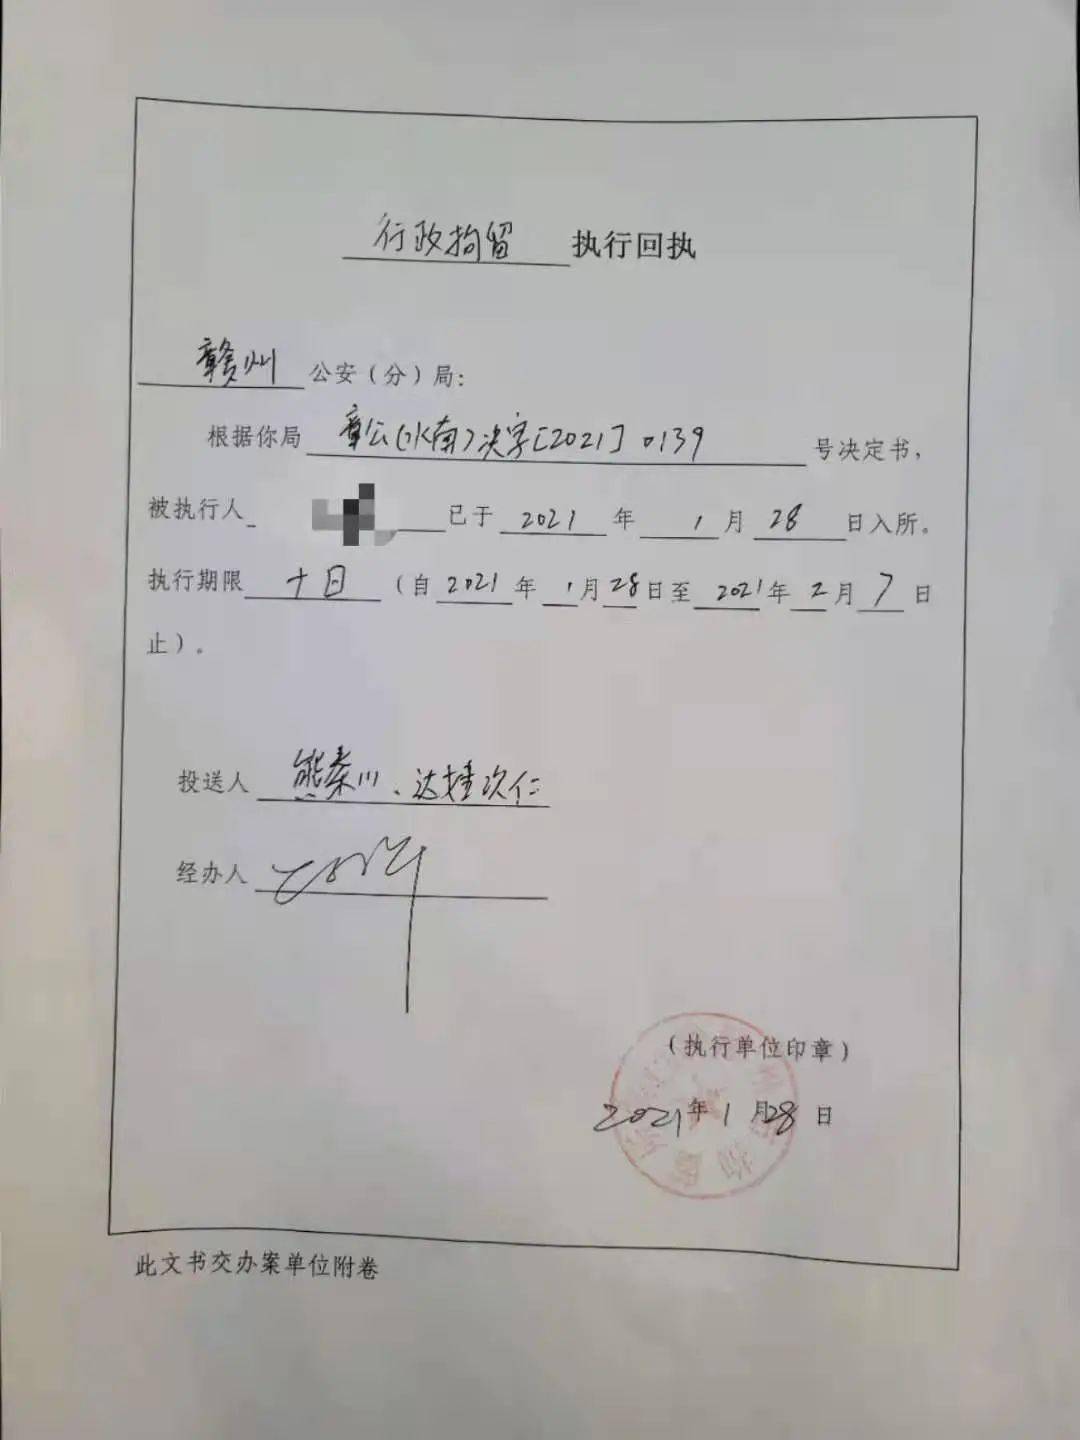 行政拘留 执行回执
赣州 公安（分）局：
根据你局 章公(水南)决字[2021]0139 号决定书，
被执行人 已于 2021 年 1 月 28 日入所。
执行期限 十日 （自 2021 年 1 月 28 日至 2021 年 2 月 7 日
止）。
投送人 熊秦川、达娃次仁
经办人
（执行单位印章）
2021年1月28日
此文书交办案单位附卷